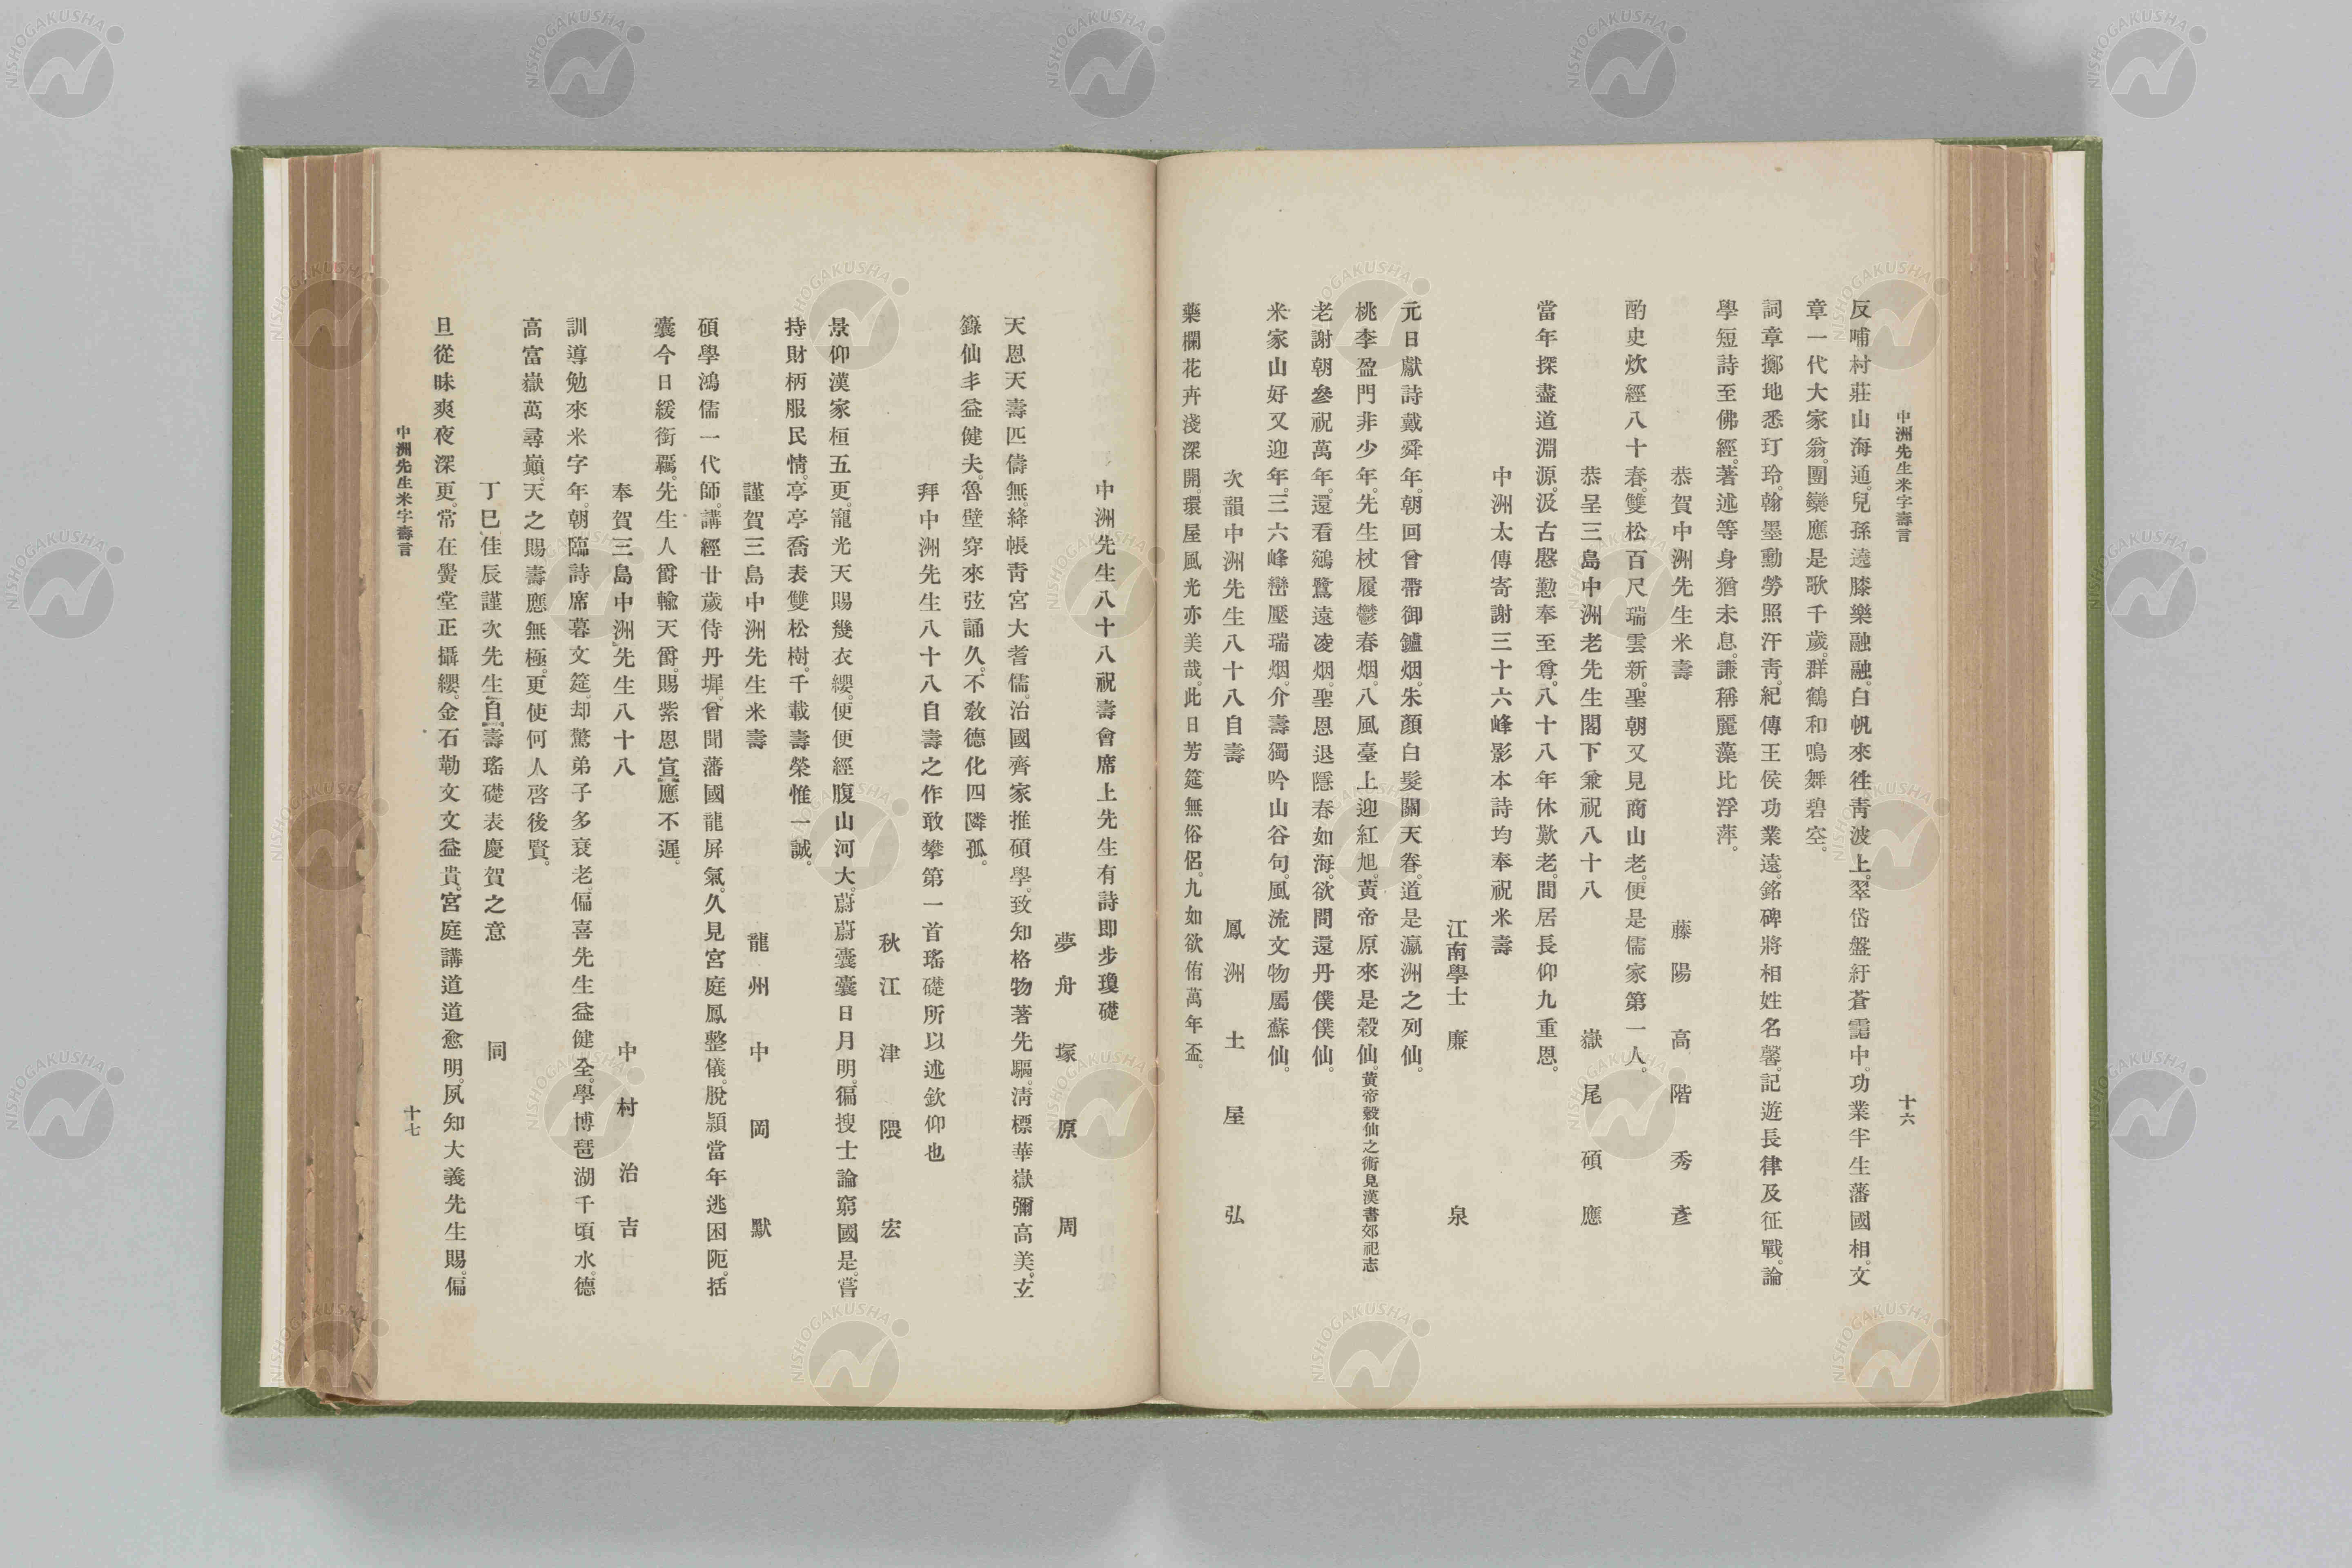 中洲先生米字壽言
十六
反哺村莊山海通。兒孫遶膝樂融融。白帆來往靑波上。翠岱盤紆蒼靄中。功業半生藩國相。文
章一代大家翁。團欒應是歌千歲。群鶴和鳴舞碧空。
詞章擲地悉玎玲。翰墨勳勞照汗靑。紀傳王侯功業遠。銘碑將相姓名馨。記遊長律及征戰。論
學短詩至佛經。著述等身猶未息。謙稱麗藻比浮萍。
恭賀中洲先生米壽
藤陽 高階秀彥
酌史炊經八十春。雙松百尺瑞雲新。聖朝又見商山老。便是儒家第一人。
恭呈三島中洲老先生閣下兼祝八十八
嶽尾碩應
當年探盡道淵源。汲古慇懃奉至尊。八十八年休歎老。間居長仰九重恩。
中洲太傳寄謝三十六峰影本詩均奉祝米壽
江南學士 廉泉
元日獻詩戴舜年。朝回曾帶御鑪烟。朱顏白髮關天眷。道是瀛洲之列仙。
桃李盈門非少年。先生杖履鬱春烟。八風臺上迎紅旭。黃帝原來是穀仙。黃帝穀仙之術見漢書郊祀志
老謝朝參祝萬年。還看鵷鷺遠凌烟。聖恩退隱春如海。欲問還丹僕僕仙。
米家山好又迎年。三六峰巒壓瑞烟。介壽獨吟山谷句。風流文物屬蘇仙。
次韻中洲先生八十八自壽
鳳洲 土屋弘
藥欄花卉淺深開。環屋風光亦美哉。此日芳筵無俗侶。九如欲侑萬年盃。
中洲先生八十八祝壽會席上先生有詩卽步瓊礎
夢舟 塚原周
天恩天壽匹儔無。絳帳靑宮大耆儒。治國齊家推碩學。致知格物著先驅。淸標華嶽彌高美。玄
籙仙丰益健夫。魯壁穿來弦誦久。不敎德化四隣孤。
拜中洲先生八十八自壽之作敢攀第一首瑤礎所以述欽仰也
秋江 津隈宏
景仰漢家桓五更。寵光天賜幾衣纓。便便經腹山河大。蔚蔚囊囊日月明。徧搜士論窮國是。嘗
持財柄服民情。亭亭喬表雙松樹。千載壽榮惟一誠。
謹賀三島中洲先生米壽
龍州 中岡默
碩學鴻儒一代師。講經廿歲侍丹墀。曾聞藩國龍屏氣。久見宮庭鳳整儀。脫穎當年逃困阨。括
囊今日緩銜羈。先生人爵輸天爵。賜紫恩宣應不遲。
奉賀三島中洲先生八十八
中村治吉
訓導勉來米字年。朝臨詩席暮文筵。却驚弟子多衰老。偏喜先生益健全。學博琶湖千頃水。德
高富嶽萬尋巓。天之賜壽應無極。更使何人啓後賢。
丁巳佳辰謹次先生自壽瑤礎表慶賀之意
同
旦從昧爽夜深更。常在黌堂正攝纓。金石勒文文益貴。宮庭講道道愈明。夙知大義先生賜。偏
中洲先生米字壽言
十七